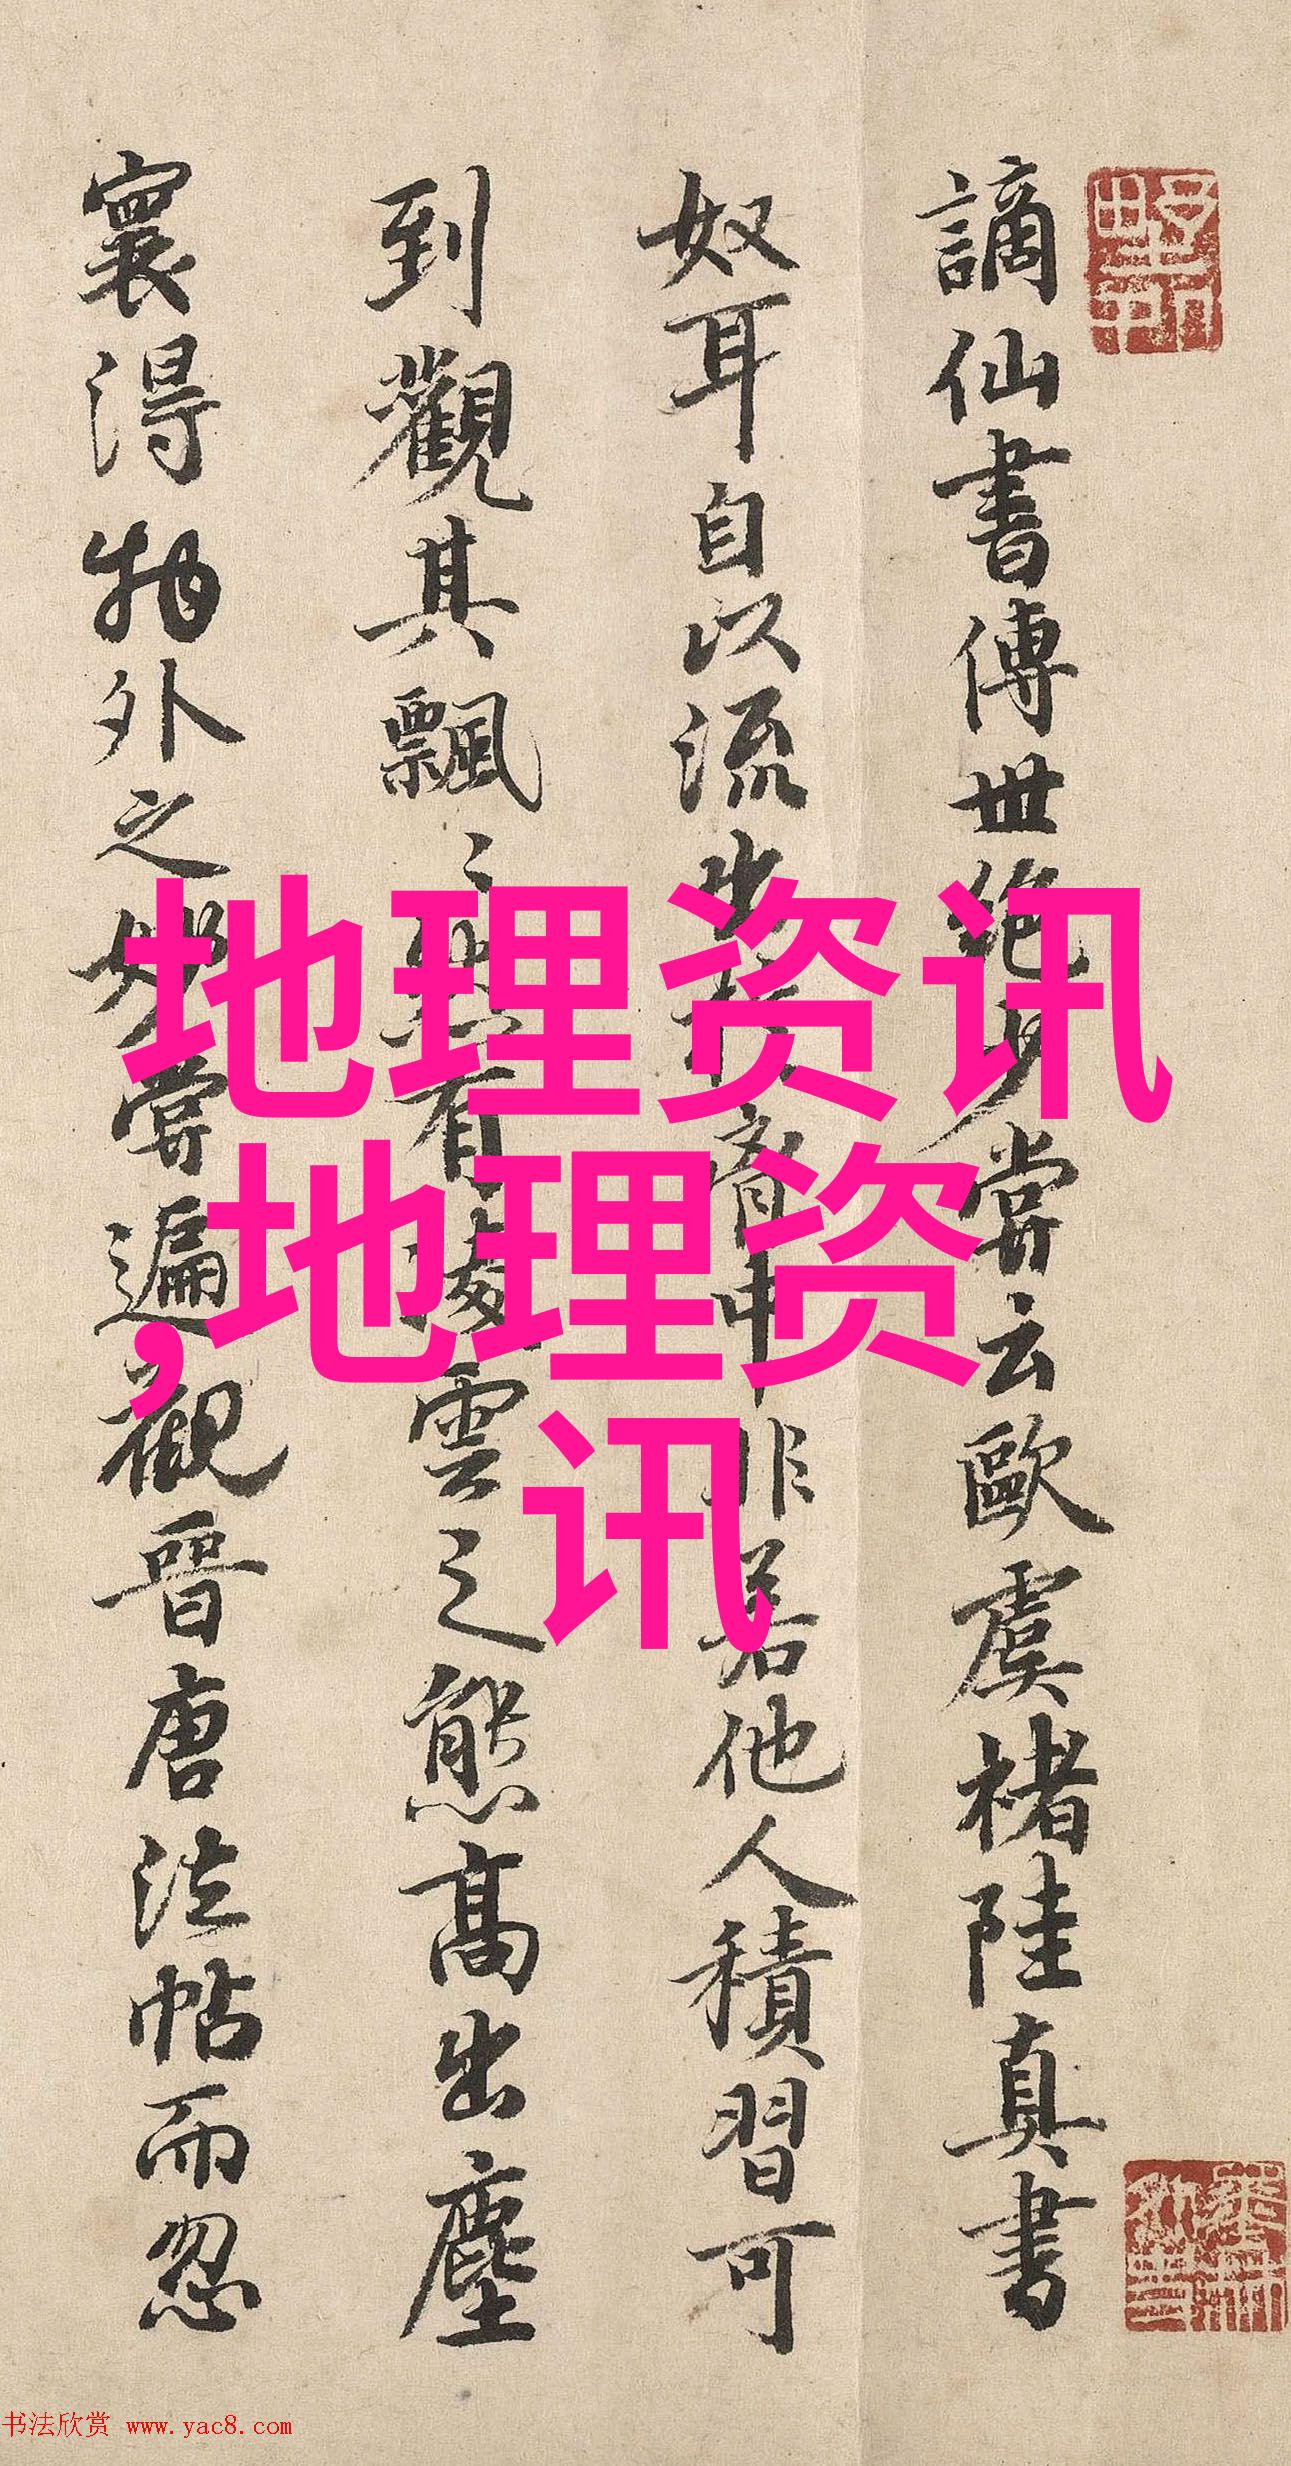 謫仙書傳世絶少嘗云歐虞褚陸真書
奴耳自以流出於胷中非若他人積習可
到觀其飄〻然有凌雲之態高出塵
寰得物外之妙嘗遍觀晉唐法帖而忽
地理资讯
,地理资
讯
书法欣赏 www.yac8.com